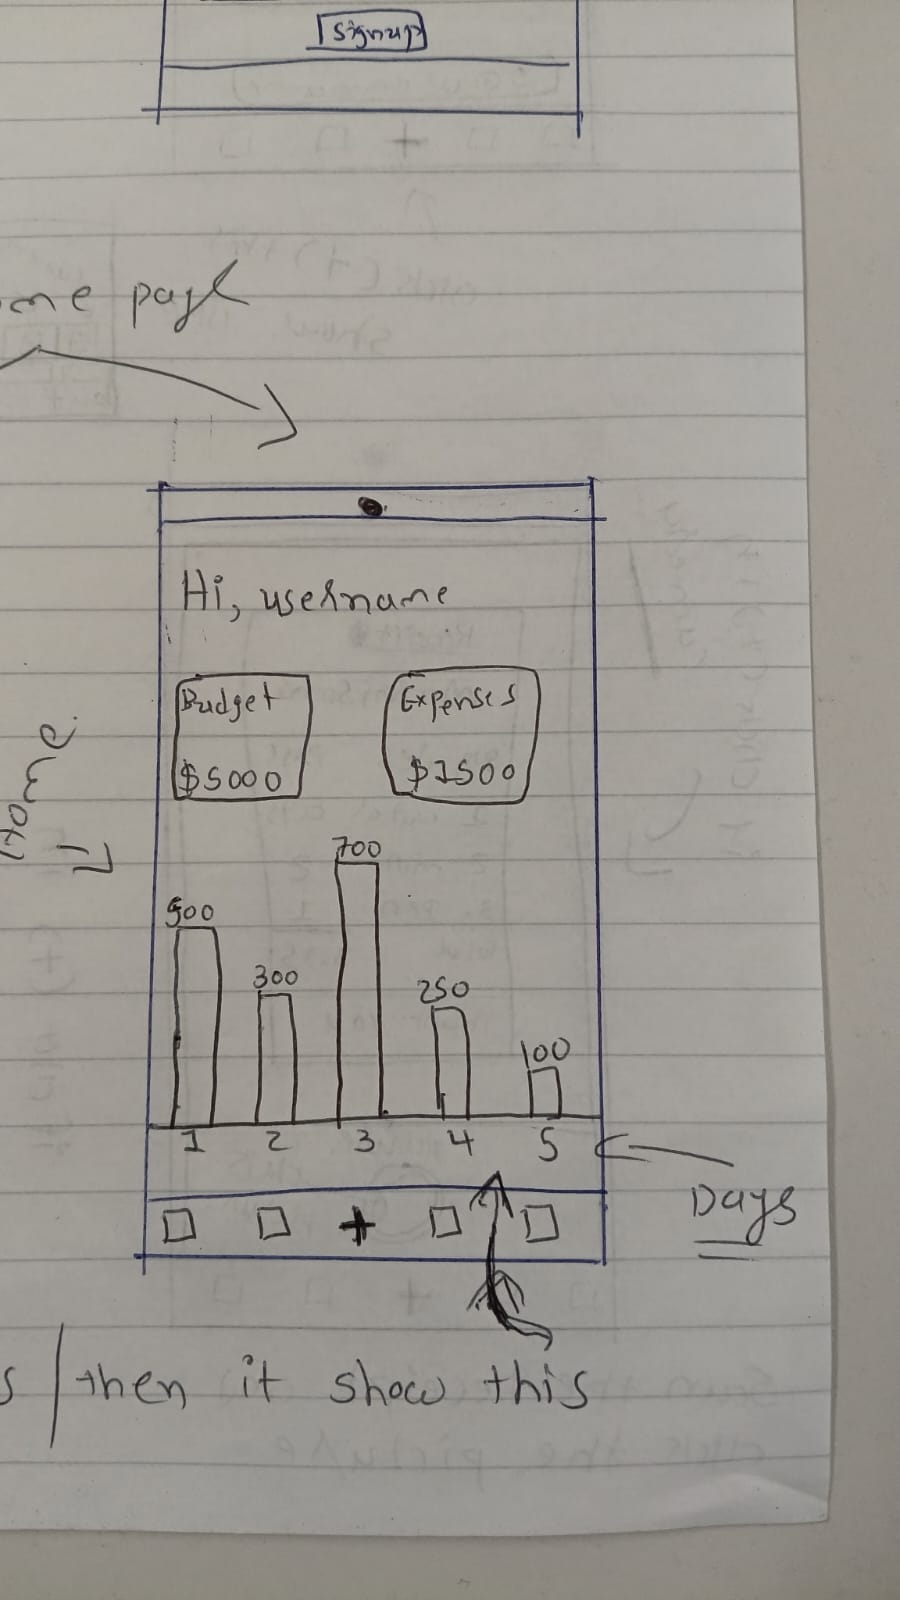 Signup
page
Hi, username
Budget
$5000
Expenses
$1500
700
500
300
250
100
1 2 3 4 5
Days
Home
+
then it show this